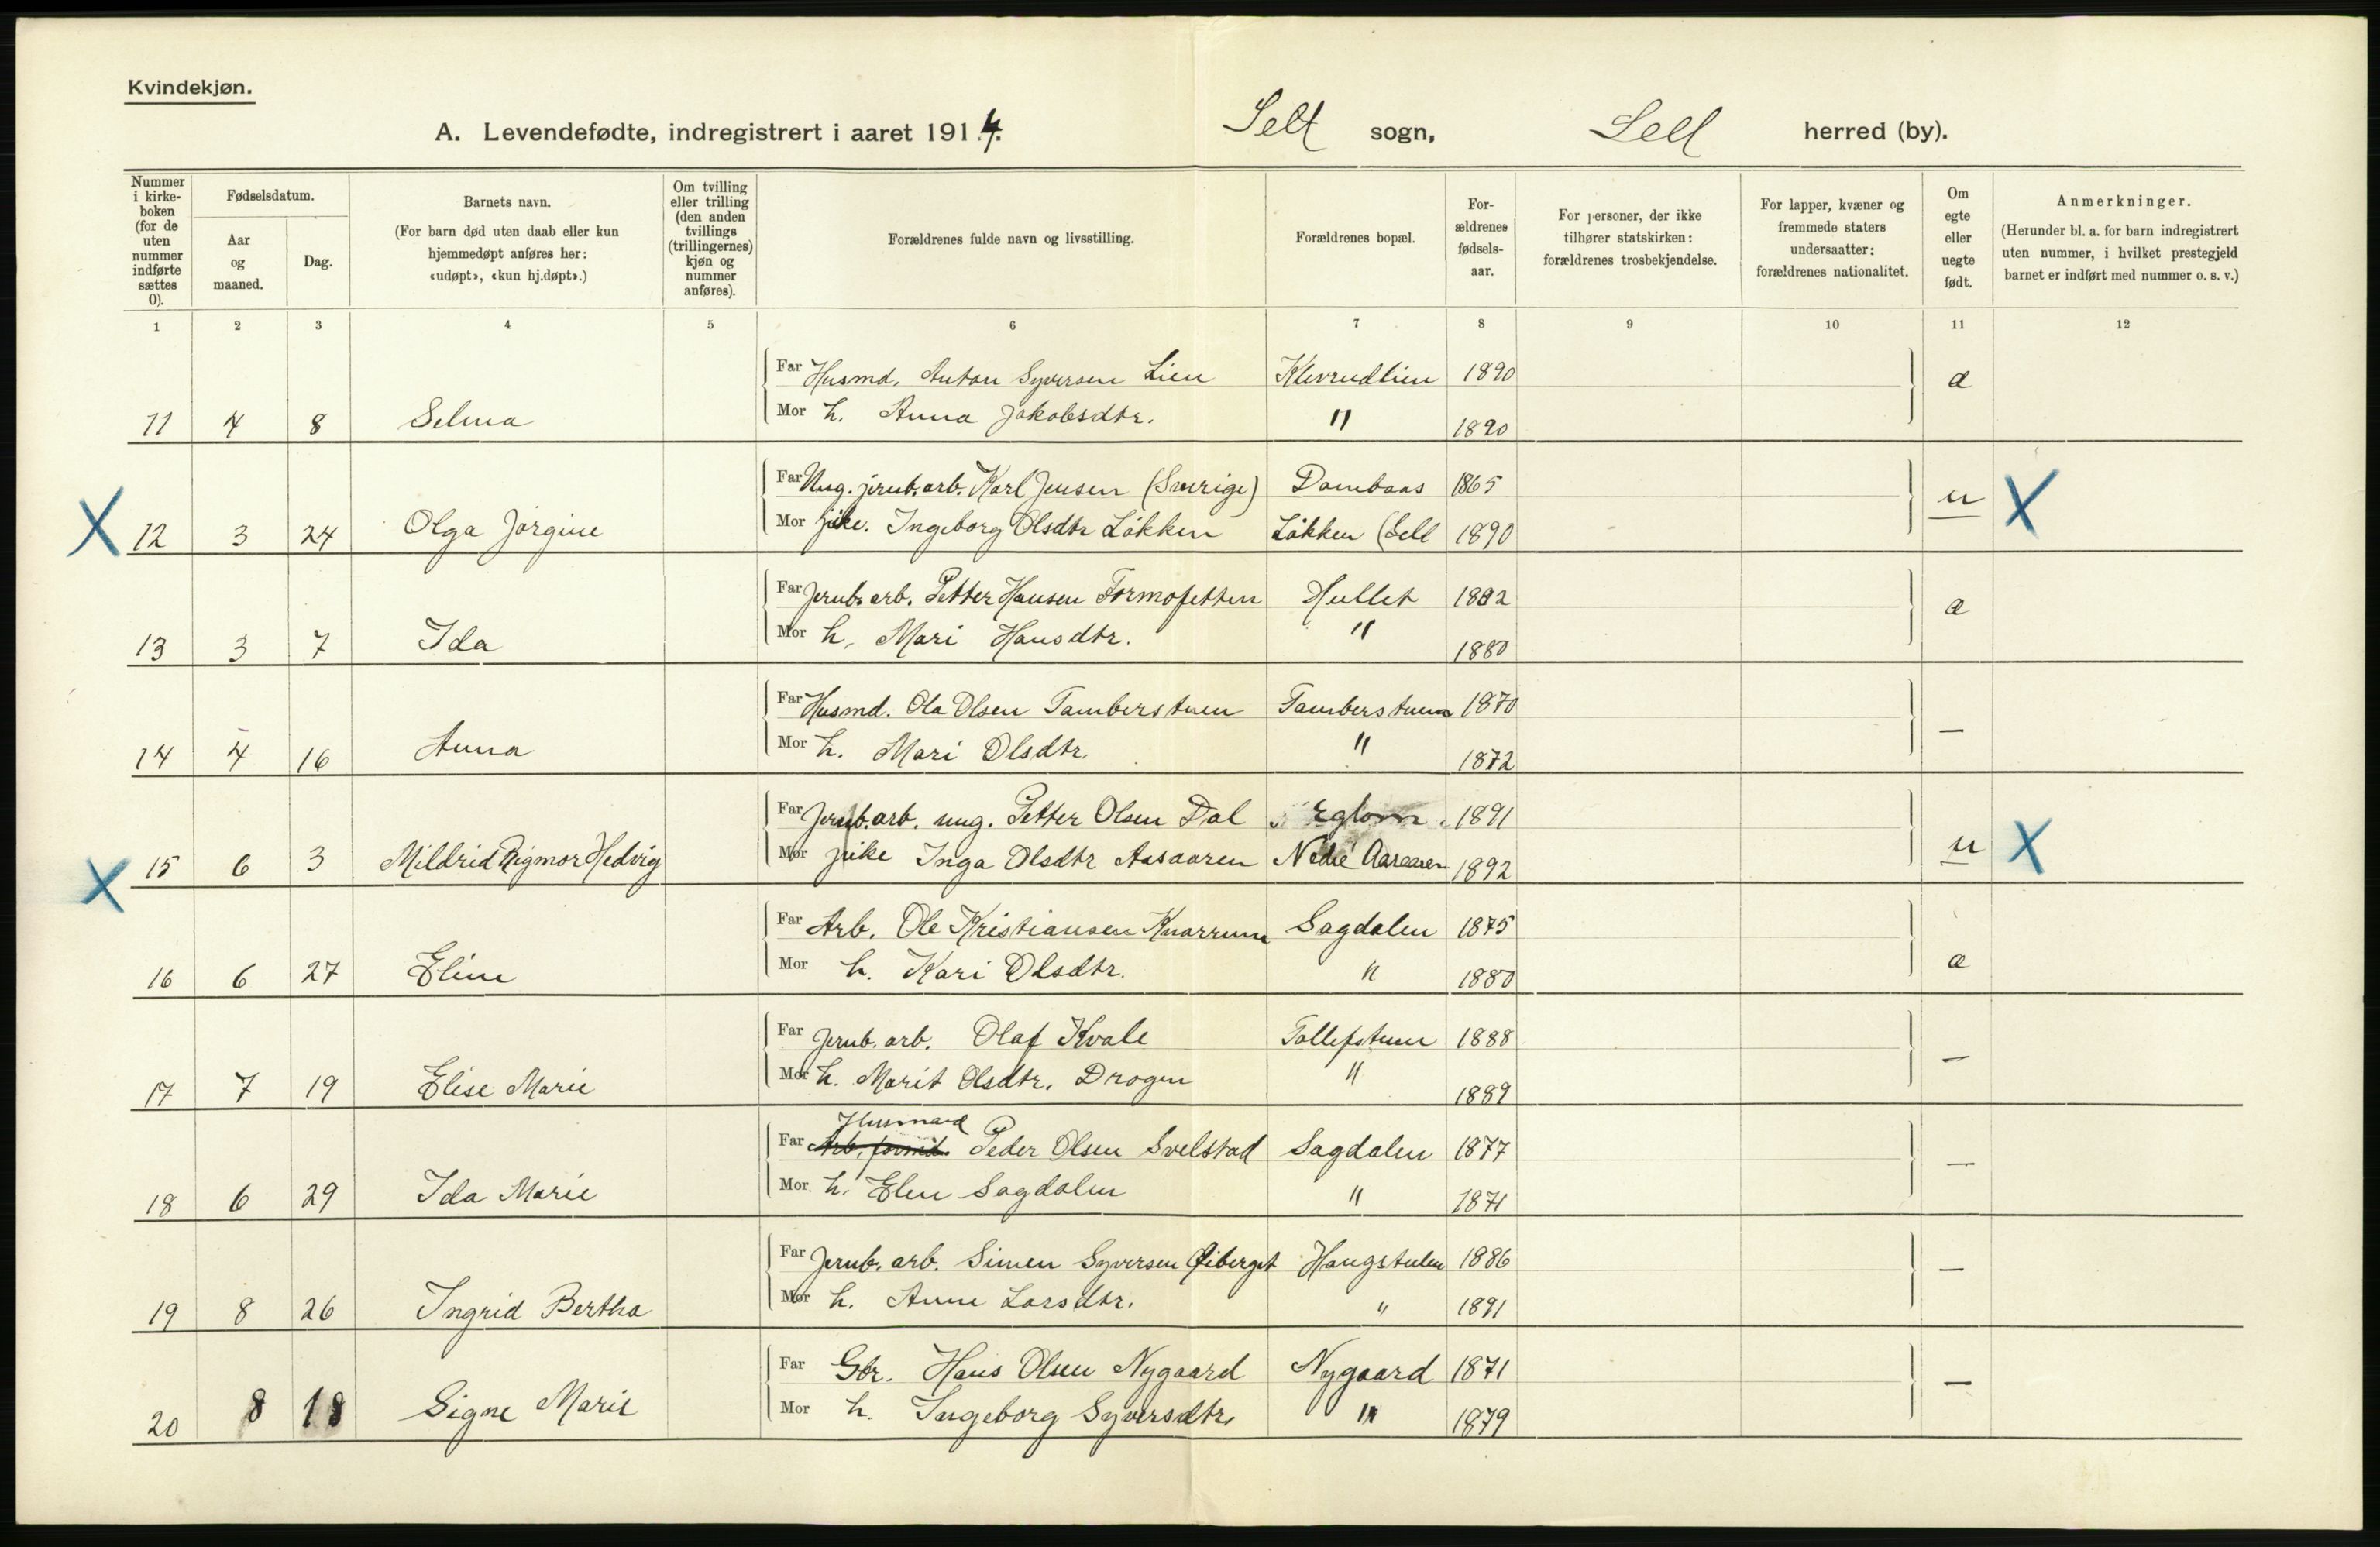 Kvindekjøn.
A. Levendefødte, indregistrert i aaret 1914. Sell sogn, Sell herred (by).
Nummer i kirkeboken (for de uten nummer indførte sættes 0).
Fødselsdatum.
Aar og maaned.
Dag.
Barnets navn.
(For barn død uten daab eller kun hjemmedøpt anføres her: «udøpt», «kun hj.døpt».)
Om tvilling eller trilling (den anden tvillings (trillingernes) kjøn og nummer anføres).
Forældrenes fulde navn og livsstilling.
Forældrenes bopæl.
Forældrenes fødselsaar.
For personer, der ikke tilhører statskirken: forældrenes trosbekjendelse.
For lapper, kvæner og fremmede staters undersaatter: forældrenes nationalitet.
Om egte eller uegte født.
Anmerkninger.
(Herunder bl. a. for barn indregistrert uten nummer, i hvilket prestegjeld barnet er indført med nummer o. s. v.)
1 2 3 4 5 6 7 8 9 10 11 12
Far Husmd. Anton Syversen Lien Klevrudlien 1890 a
11 4 8 Selma Mor h. Anna Jakobsdtr. " 1890
Far Ung. jernb.arb. Karl Jensen (Sverige) Dombaas 1865 u X
X 12 3 24 Olga Jørgine Mor pike. Ingeborg Olsdtr Løkken Løkken (Sell 1890
Far Jernb. arb. Petter Hansen Formofetten Hullet 1882 a
13 3 7 Ida Mor h. Mari Hansdtr. " 1880
Far Husmd. Ola Olsen Tamberstuen Tamberstuen 1870 —
14 4 16 Anna Mor h. Mari Olsdtr. " 1872
Far Jernb.arb. ung. Petter Olsen Dal Eglom 1891 u X
X 15 6 3 Mildrid Rigmor Hedvig Mor pike Inga Olsdtr Aasaaren Nedre Aasaaren 1892
Far Arb. Ole Kristiansen Knarrum Sagdalen 1875 a
16 6 27 Eline Mor h. Kari Olsdtr. " 1880
Far Jernb. arb. Olaf Kvale Tollefstuen 1888 —
17 7 19 Elise Marie Mor h. Marit Olsdtr. Drogen " 1889
Husmand
Far Arb. formd. Peder Olsen Svelstad Sagdalen 1877 —
18 6 29 Ida Marie Mor h. Elen Sagdalen " 1871
Far Jernb. arb. Simen Syversen Øiberget Haugstulen 1886 —
19 8 26 Ingrid Bertha Mor h. Anne Larsdtr. " 1891
Far Gbr. Hans Olsen Nygaard Nygaard 1871 —
20 8 18 Signe Marie Mor h. Ingeborg Syversdtr. " 1879